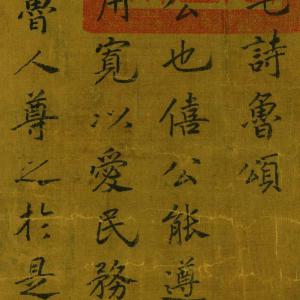 毛詩魯頌
公也僖公能遵
用寬以愛民務
魯人尊之於是